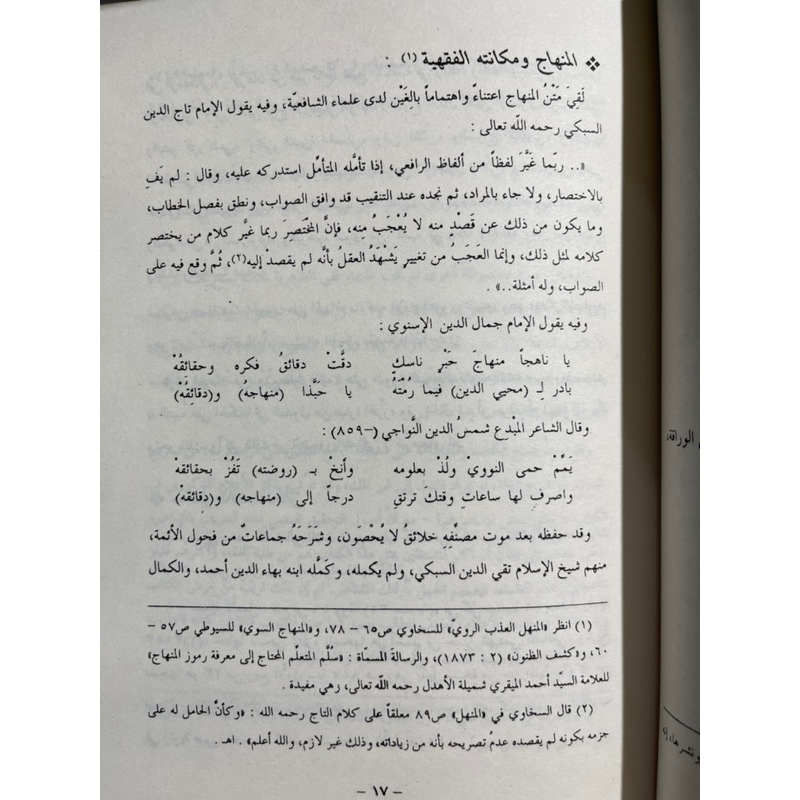 ❖ المنهاج ومكانته الفقهية (١) :
لَقِيَ مَتْنُ المنهاج اعتناءً واهتماماً بالِغَيْن لدى علماء الشافعيّة، وفيه يقول الإمام تاج الدين
السبكي رحمه اللّه تعالى :
«.. ربّما غَيَّرَ لفظاً من ألفاظ الرافعي، إذا تأمّله المتأمّل استدركه عليه، وقال : لم يَفِ
بالاختصار، ولا جاء بالمراد، ثم نجده عند التنقيب قد وافق الصواب، ونطق بفصل الخطاب،
وما يكون من ذلك عن قَصْدٍ منه لا يُعْجَبُ مِنه، فإنَّ المُخْتَصِرَ ربما غيَّر كلام من يختصر
كلامه لمثل ذلك، وإنما العَجَبُ من تغييرٍ يَشْهَدُ العقلُ بأنَّه لم يقصدْ إليه(٢)، ثُمَّ وقع فيه على
الصواب، وله أمثلة..» .
وفيه يقول الإمام جمال الدين الإسنوي :
يا ناهجاً منهاجَ حَبْرٍ ناسكٍ دقَّتْ دقائقُ فكره وحقائقُهْ
بادر لـِ (محيي الدين) فيما رُمْتَهُ يا حَبَّذا (منهاجهُ) و(دقائِقُهْ)
وقال الشاعر المبْدِع شمسُ الدين النَّواجي (-٨٥٩) :
يَمِّمْ حمى النوويْ ولُذْ بعلومه وأنِخْ بـ (روضته) تَفُزْ بحقائقهْ
واصرفْ لها ساعاتِ وقتكَ ترتقِ درجاً إلى (منهاجه) و(دقائقهْ)
وقد حفظه بعد موت مصنِّفِهِ خلائقُ لا يُحْصَون، وشَرَحَهُ جماعاتٌ من فحول الأئمة،
منهم شيخ الإسلام تقي الدين السبكي، ولم يكمله، وكمَّله ابنه بهاء الدين أحمد، والكمال
(١) انظر «المنهل العذب الرويّ» للسخاوي ص٦٥ – ٧٨، و«المنهاج السوي» للسيوطي ص٥٧ –
٦٠، و«كشف الظنون» (٢ : ١٨٧٣)، والرسالة المسمّاة : «سُلَّم المتعلِّم المحتاج إلى معرفة رموز المنهاج»
للعلامة السيِّد أحمد الميقري شميلة الأهدل رحمه اللّه تعالى، وهي مفيدة .
(٢) قال السخاوي في «المنهل» ص٨٩ معلقاً على كلام التاج رحمه الله : «وكأنَّ الحامل له على
جزمه بكونه لم يقصده عدمُ تصريحه بأنه من زياداته، وذلك غير لازم، والله أعلم» . اهـ .
– ١٧ –
الوراقة،